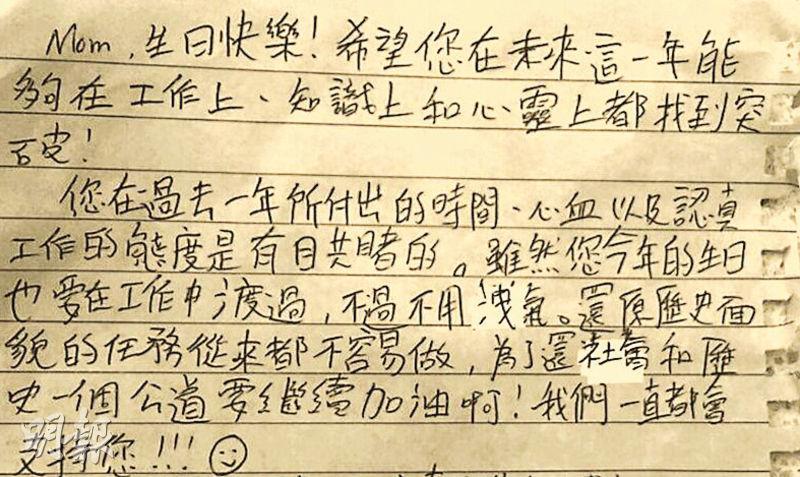 Mom, 生日快樂! 希望您在未來這一年能
夠在工作上、知識上和心靈上都找到突
破!
您在過去一年所付出的時間、心血以及認真
工作的態度是有目共睹的。雖然您今年的生日
也要在工作中渡過, 不過不用洩氣。還原歷史面
貌的任務從來都不容易做, 為了還社會和歷
史一個公道要繼續加油啊! 我們一直都會
支持您!!!
明報